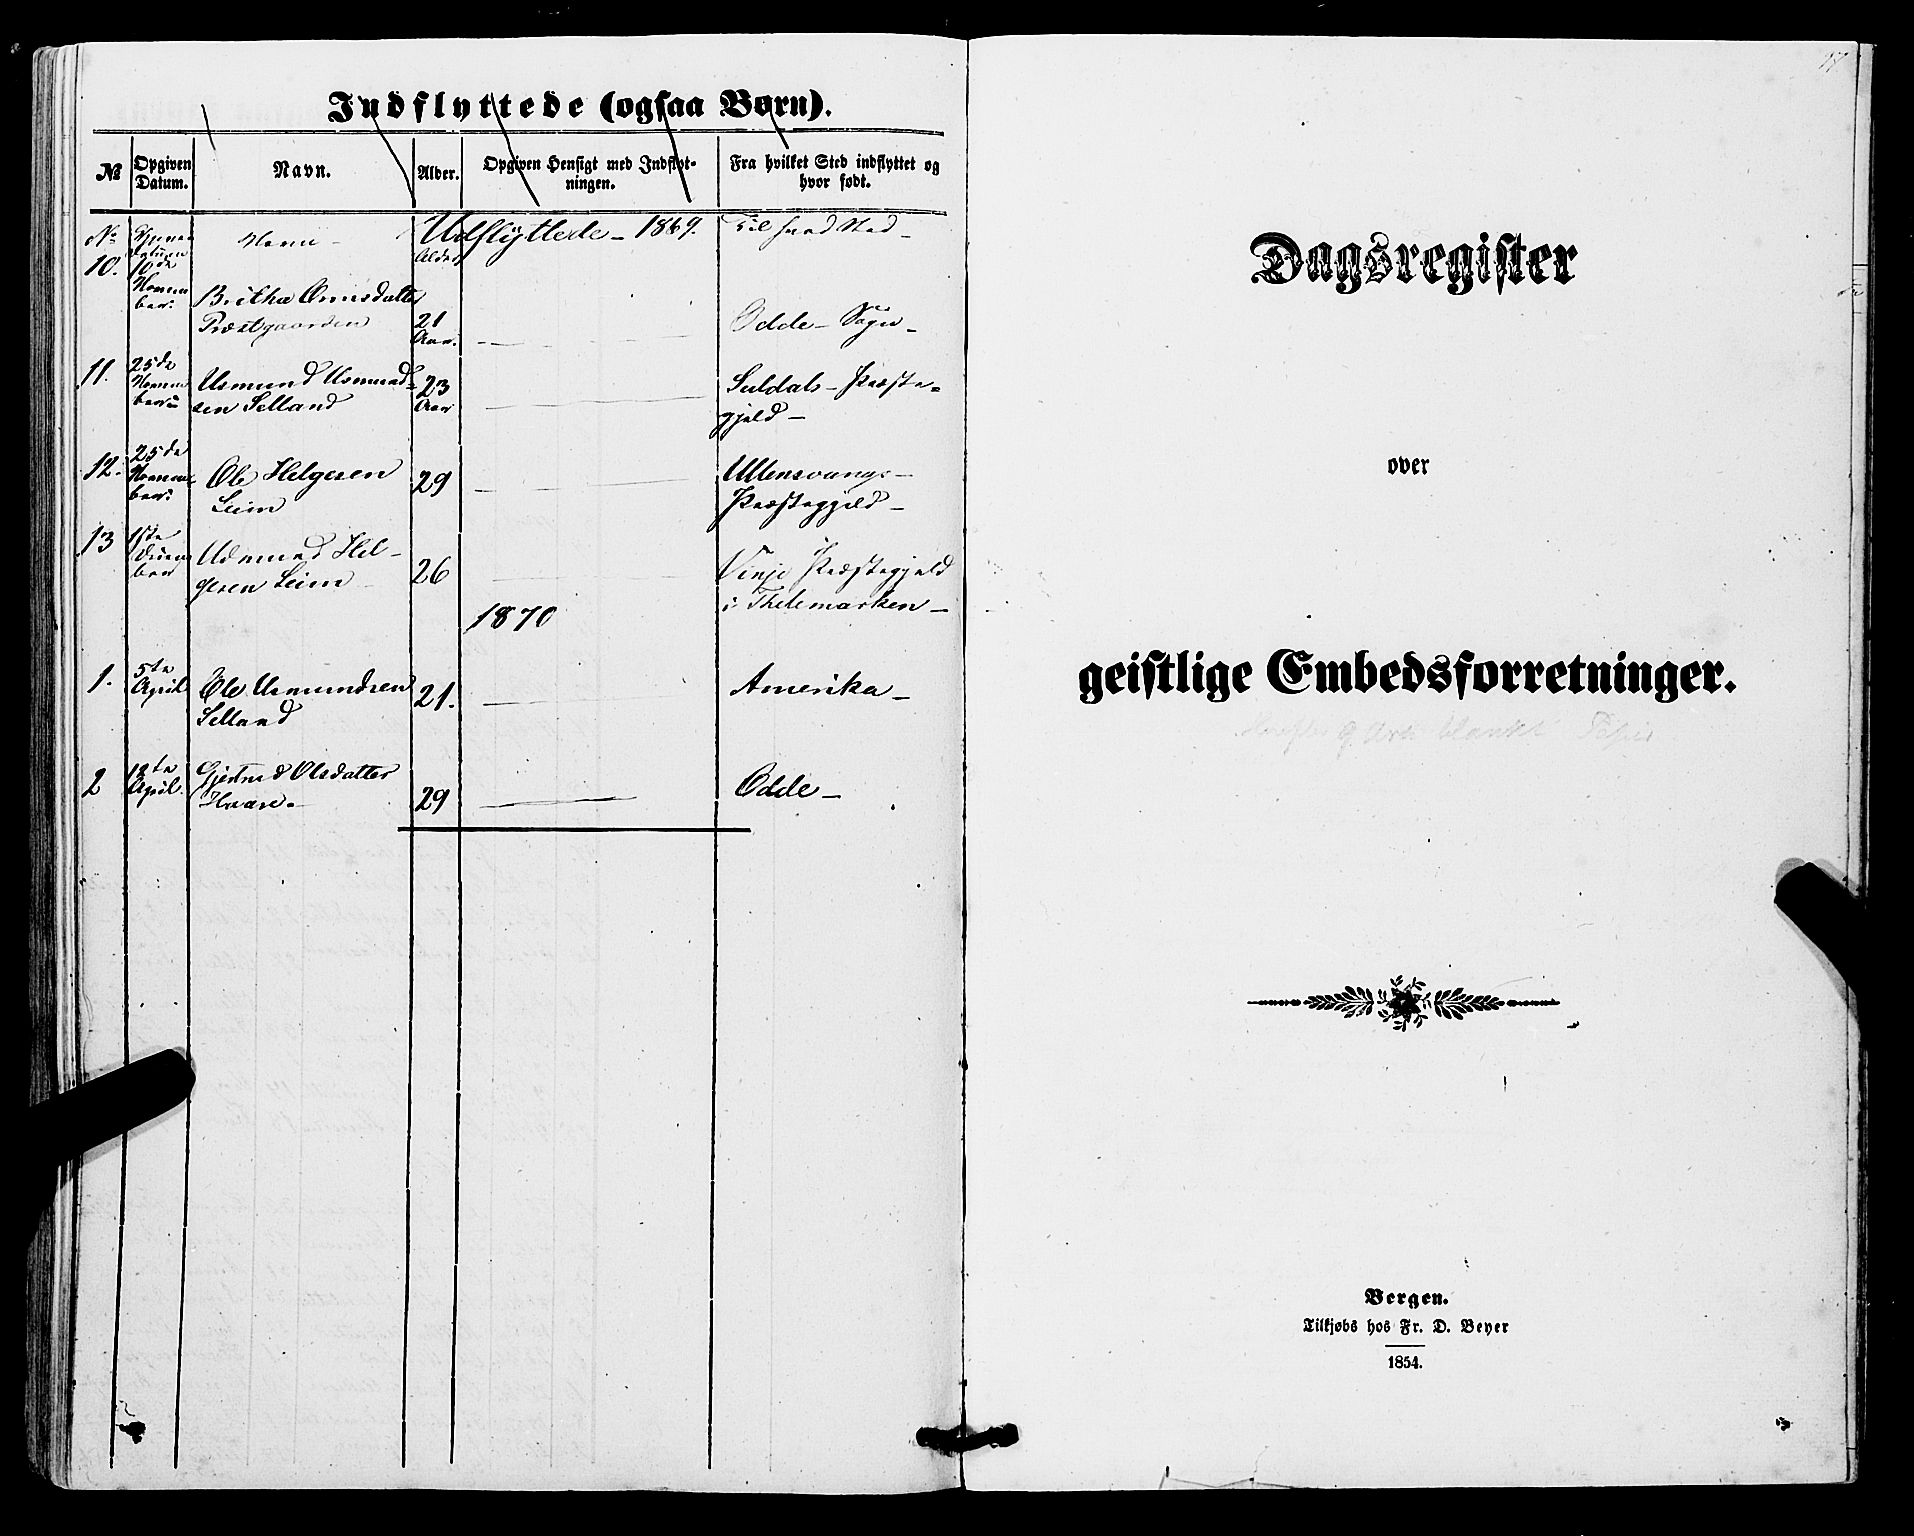 Indflyttede (ogsaa Børn).
№
Opgiven Datum.
Navn.
Alder.
Opgiven Hensigt med Indflyt-
ningen.
Fra hvilket Sted indflyttet og
hvor født.
Udflyttede – 1869.
No
Navn –
Alder
Til hvad Sted –
10.
10de
Novem
ber:
Britha Omisdatter
Præstgaarden
21
Aar.
Odde – Sogn –
11.
25de
Novem
ber:
Asmund Asmund=
sen Selland
23
Aar
Suldals – Præste=
gjeld –
12.
25de
Novem
ber:
Ole Helgesen
Seim
29
Ullensvangs –
Præstegjeld –
13
1ste
Decem
ber
Asmund Hel-
gesen Seim
26
Vinje Præstegjeld
i Thelemarken –
1870
1.
5te
April
Ole Asmundsen
Selland
21.
Amerika –
2
12te
April.
Gjertrud Olsdatter
Hvare. –
29
Odde –
17
Dagsregister
over
geistlige Embedsforretninger.
blankt Papir
Bergen.
Tilkjøbs hos Fr. D. Beyer
1854.